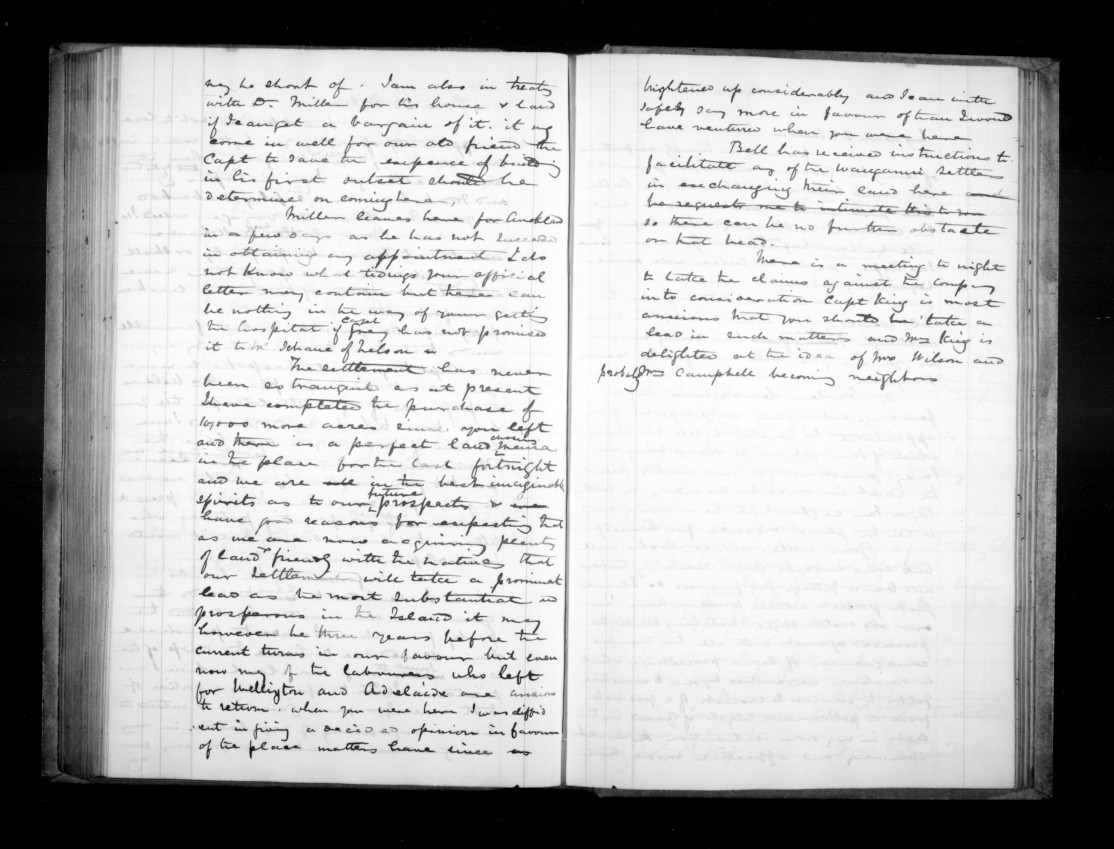 may be short of. I am also in treaty
with Dr. Miller for his house & land
if I can get a bargain of it. it may
come in well for our old friend the
Capt to save the expence of building
in his first outset should he
determine on coming here
Miller leaves here for Auckland
in a few days as he has not succeeded
in obtaining any appointment I do
not know what tidings your official
letter may contain but there can
be nothing in the way of your getting
the hospital if Capt Grey has not promised
it to of Nelson
The settlement has never
been so tranquil as at present
I have completed the purchase of
10,000 more acres since you left
and there is a perfect land mania
in the place for the last fortnight
and we are all in the best imaginable
spirits as to our future prospects, & we
have good reasons for expecting that
as we are now acquiring plenty
of land & friendly with the natives that
our settlement will take a prominent
lead as the most substantial and
prosperous in the Island it may
however be three years before the
current turns in our favour but even
now many of the labourers who left
for Wellington and Adelaide are anxious
to return. when you were here I was diffid
ent in giving a decided opinion in favour
of the place matters have since
brightened up considerably and I can with
safety say more in favour of than I would
have ventured when you were here
Bell has received instructions to
facilitate any of the Wanganui settlers
in exchanging their land here and
he requests me to intimate this to you
so there can be no further obstacle
on that head.
There is a meeting to night
to take the claims against the Company
into consideration Capt King is most
anxious that you should take a
lead in such matters and Mrs King is
delighted at the idea of Mrs Wilson and
probably Mrs Campbell becoming neighbors